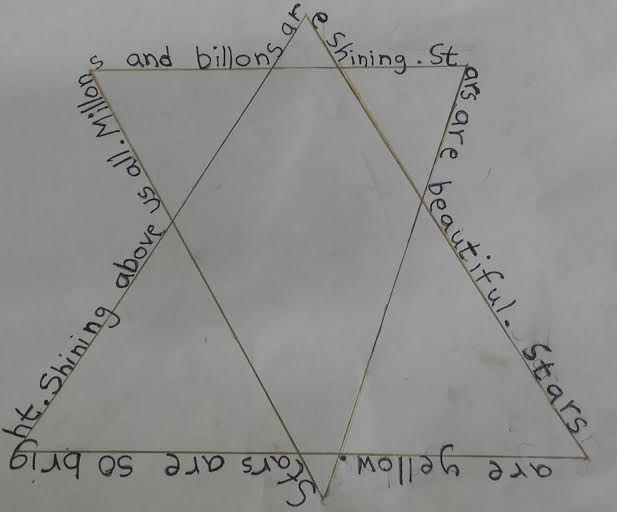 Stars are so bright. Shining above us all. Millons and billons are shining. Stars are beautiful. Stars are yellow.